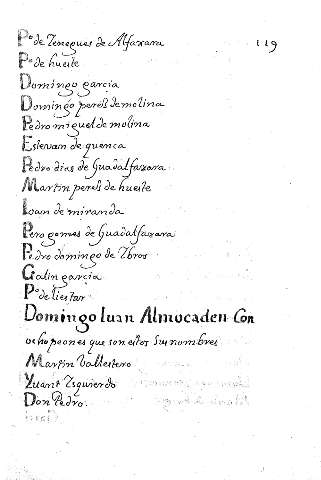 Po de Zenegues de Alfaxara
119
Po de huete
Domingo garcia
Domingo peres de molina
Pedro miguel de molina
Estevam de quenca
Pedro dias de Guadalfaxara
Martin peres de huete
Ioan de miranda
Pero gomes de Guadalfaxara
Pedro domingo de Ybros
Galin garcia
Po de liestar
Domingo Iuan Almocaden Con
ocho peones que son estos sus nombres
Martin Vallestero
Yuani Isquierdo
Don Pedro.